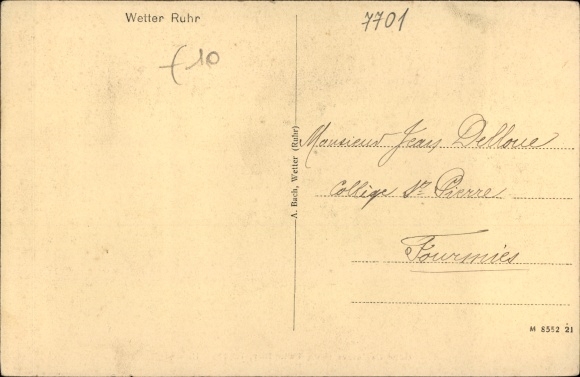 Wetter Ruhr
7701
£10
A. Bach, Wetter (Ruhr)
Monsieur Jean Delloue
Collège St Pierre
Fourmies
M 8552 21